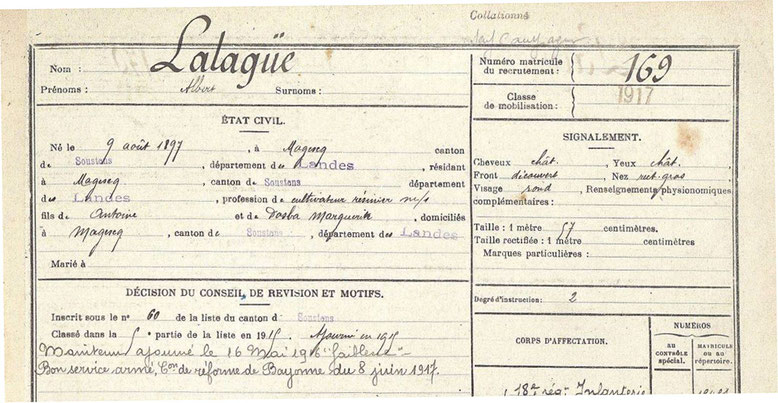 Collationné
Lalagüe
Nom :
Prénoms : Albert Surnoms :
Numéro matricule
du recrutement : 169
Classe
de mobilisation : 1917
ÉTAT CIVIL.
Né le 9 août 1897, à Magescq canton
de Soustons, département des Landes, résidant
à Magescq, canton de Soustons département
des Landes, profession de cultivateur résinier
fils de Antoine et de Dosba Marguerite, domiciliés
à Magescq, canton de Soustons, département des Landes
Marié à
SIGNALEMENT.
Cheveux chât. Yeux chât.
Front découvert Nez rect. gros
Visage rond, Renseignements physionomiques
complémentaires :
Taille : 1 mètre 57 centimètres.
Taille rectifiée : 1 mètre centimètres
Marques particulières :
Degré d'instruction : 2
DÉCISION DU CONSEIL DE REVISION ET MOTIFS.
Inscrit sous le n° 60 de la liste du canton d Soustons
Classé dans la 5e partie de la liste en 1915 Ajourné en 1915
ajourné le 16 Mai 1916 "faiblesse"
Bon service armé, Con de réforme de Bayonne du 8 juin 1917.
CORPS D'AFFECTATION.
NUMÉROS
AU
CONTRÔLE
spécial.
MATRICULE
ou au
répertoire.
18e rég. Infanterie